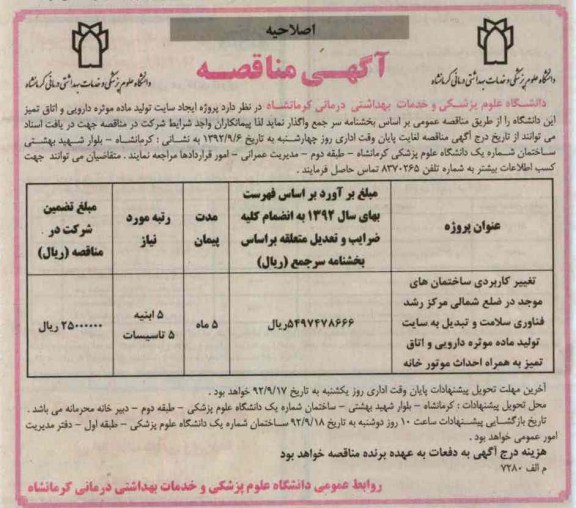 اصلاحیه
آگهی مناقصه
دانشگاه علوم پزشکی و خدمات بهداشتی درمانی کرمانشاه
دانشگاه علوم پزشکی و خدمات بهداشتی درمانی کرمانشاه
دانشگاه علوم پزشکی و خدمات بهداشتی درمانی کرمانشاه در نظر دارد پروژه ایجاد سایت تولید ماده موثره دارویی و اتاق تمیز
این دانشگاه را از طریق مناقصه عمومی بر اساس بخشنامه سر جمع واگذار نماید لذا پیمانکاران واجد شرایط شرکت در مناقصه جهت در یافت اسناد
می توانند از تاریخ درج آگهی مناقصه لغایت پایان وقت اداری روز چهارشنبه به تاریخ ۱۳۹۲/۹/۶ به نشانی : کرمانشاه - بلوار شهید بهشتی
ساختمان شماره یک دانشگاه علوم پزشکی کرمانشاه - طبقه دوم - مدیریت عمرانی - امور قراردادها مراجعه نمایند . متقاضیان می توانند جهت
کسب اطلاعات بیشتر به شماره تلفن ۸۳۷۰۲۶۵ تماس حاصل فرمایند .
عنوان پروژه
مبلغ بر آورد بر اساس فهرست
بهای سال ۱۳۹۲ به انضمام کلیه
ضرایب و تعدیل متعلقه براساس
بخشنامه سرجمع (ریال)
مدت
پیمان
رتبه مورد
نیاز
مبلغ تضمین
شرکت در
مناقصه (ریال)
تغییر کاربردی ساختمان های
موجد در ضلع شمالی مرکز رشد
فناوری سلامت و تبدیل به سایت
تولید ماده موثره دارویی و اتاق
تمیز به همراه احداث موتور خانه
۵۴۹۷۴۷۸۶۶۶ریال
۵ ماه
۵ ابنیه
۵ تاسیسات
۲۵۰۰۰۰۰۰ ریال
آخرین مهلت تحویل پیشنهادات پایان وقت اداری روز یکشنبه به تاریخ ۹۲/۹/۱۷ خواهد بود .
محل تحویل پیشنهادات : کرمانشاه - بلوار شهید بهشتی - ساختمان شماره یک دانشگاه علوم پزشکی - طبقه دوم - دبیر خانه محرمانه می باشد .
تاریخ بازگشایی پیشنهادات ساعت ۱۰ روز دوشنبه به تاریخ ۹۲/۹/۱۸ ساختمان شماره یک دانشگاه علوم پزشکی - طبقه اول - دفتر مدیریت
امور عمومی خواهد بود .
هزینه درج آگهی به دفعات به عهده برنده مناقصه خواهد بود
م الف ۷۲۸۰
روابط عمومی دانشگاه علوم پزشکی و خدمات بهداشتی درمانی کرمانشاه